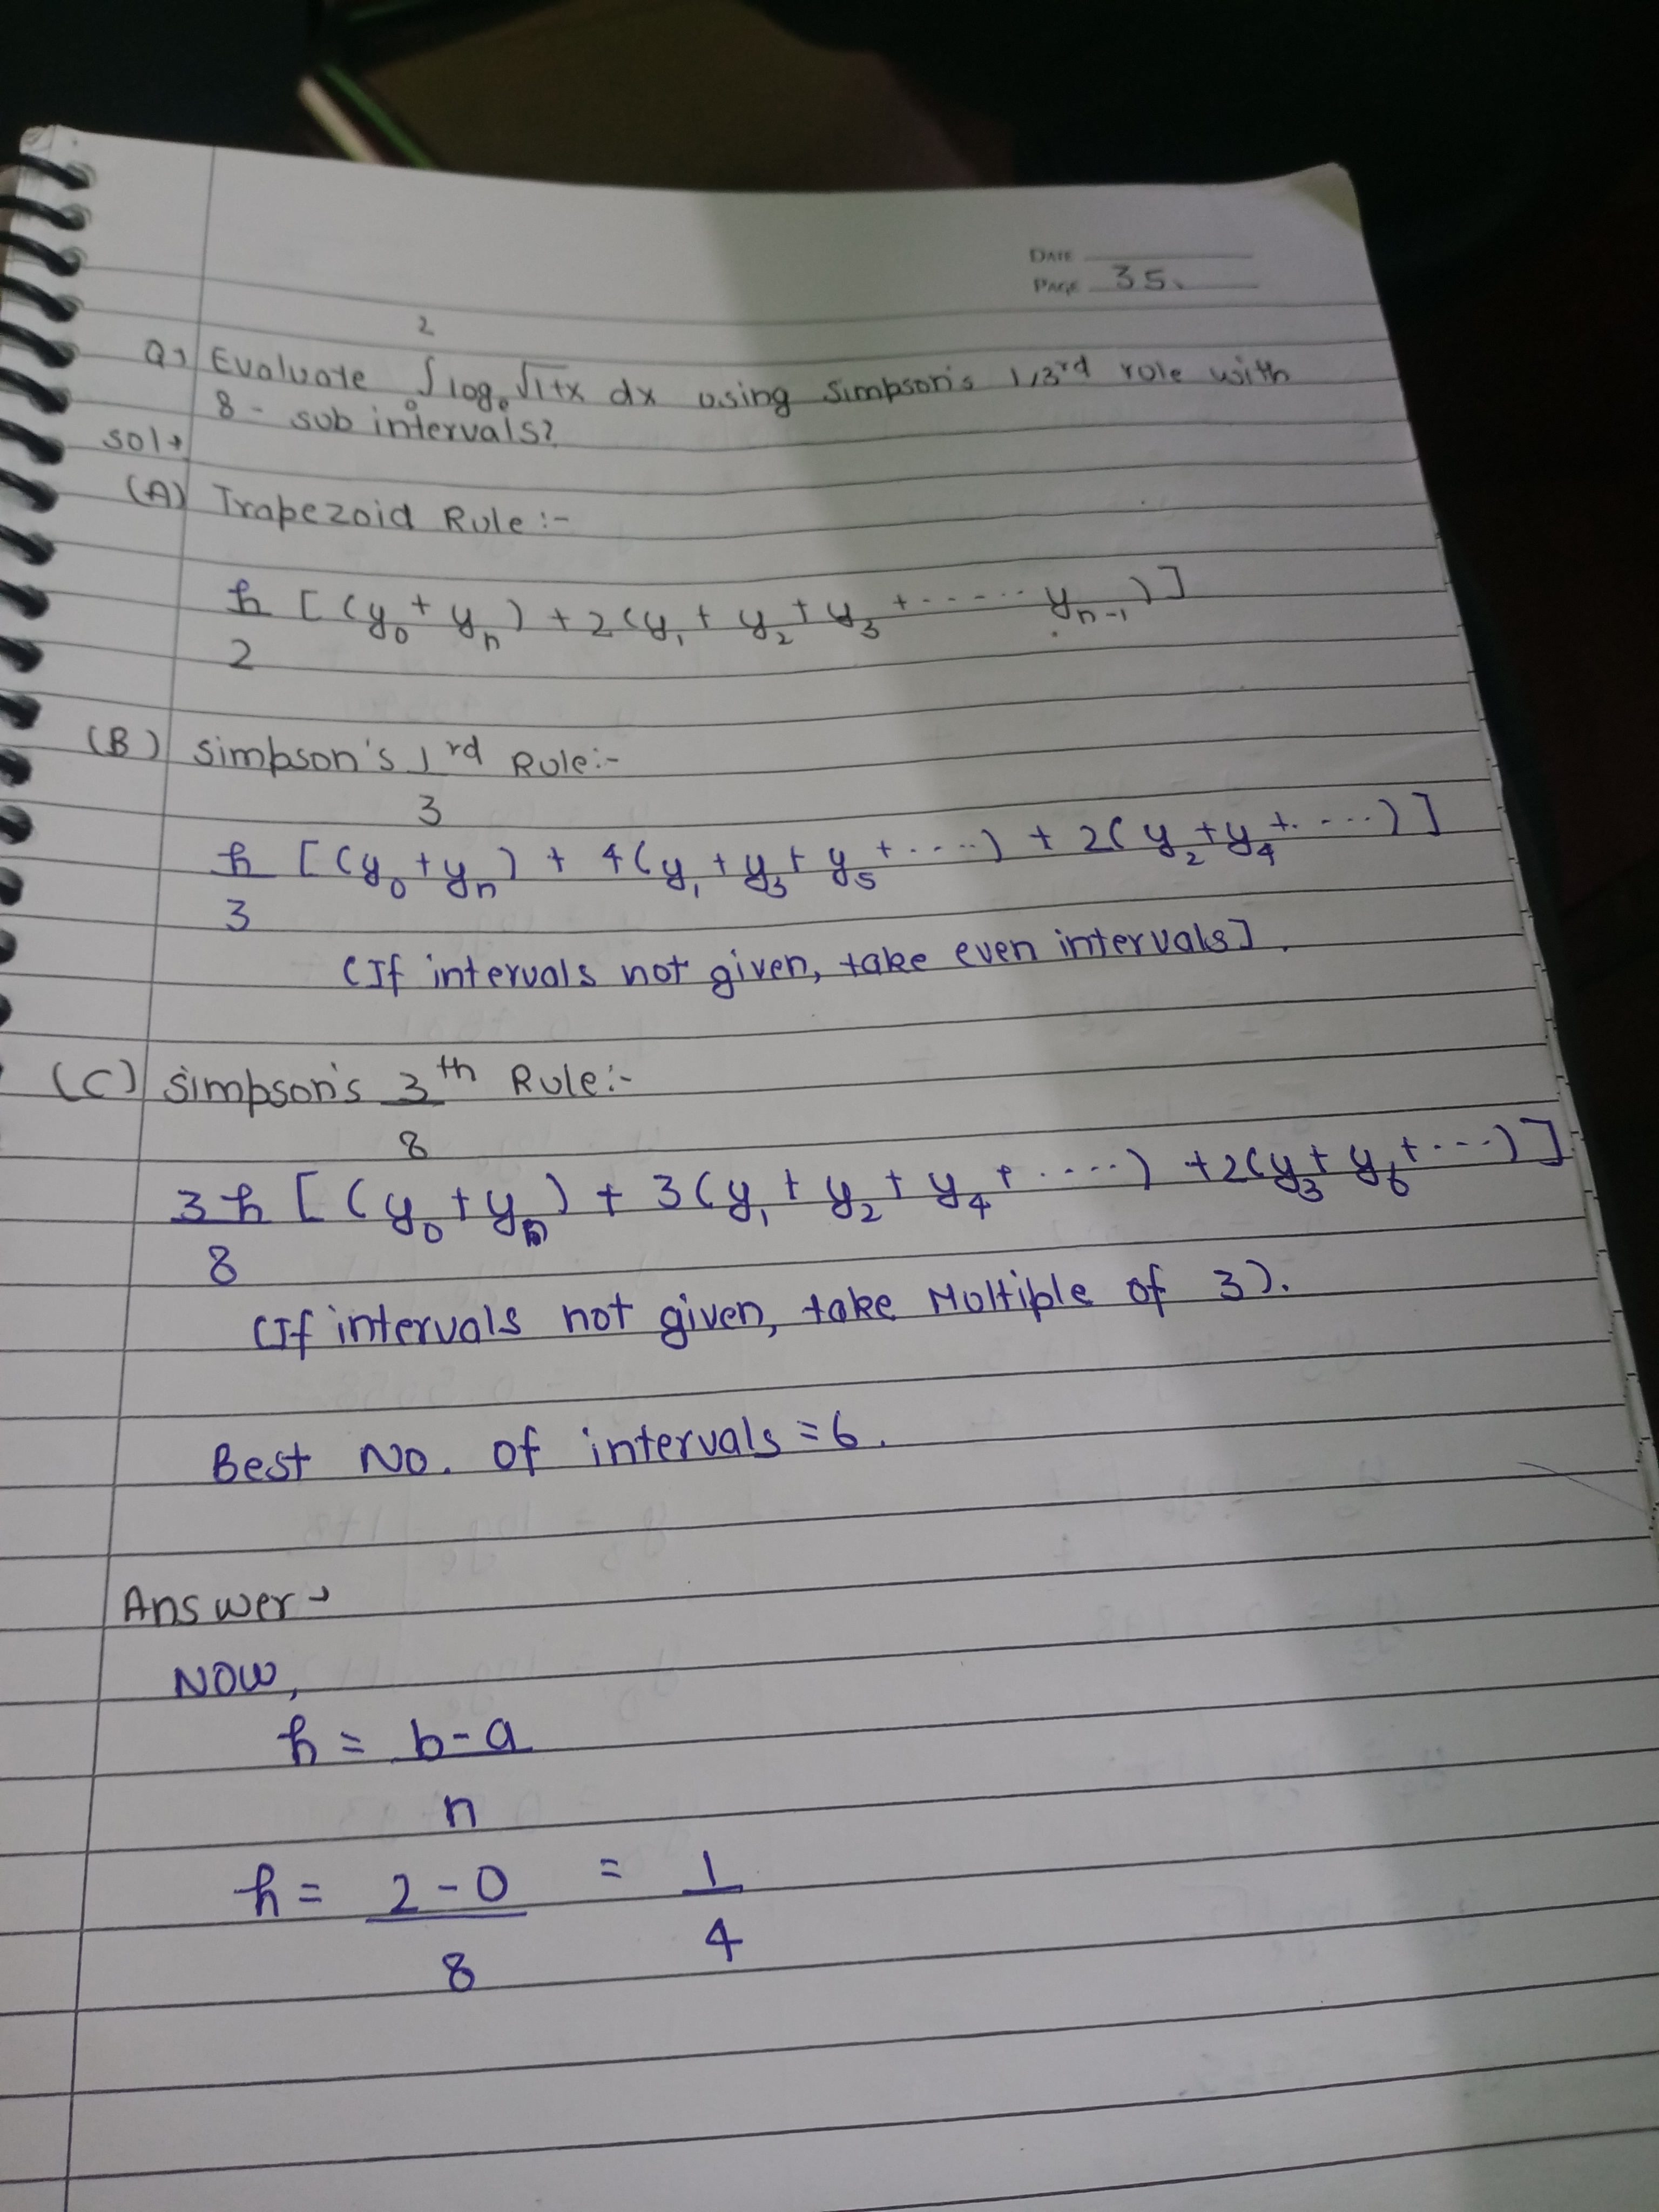 DATE
PAGE 35.
2
Q→ Evaluate ∫ logₑ √1+x dx using Simpson's 1/3rd role with
0
8 - sub intervals?
Sol→
(A) Trapezoid Rule :-
h [(y₀ + yₙ) + 2(y₁ + y₂ + y₃ + ...... yₙ₋₁)]
2
(B) Simpson's 1 rd Rule:-
3
h [(y₀ + yₙ) + 4(y₁ + y₃ + y₅ + ....) + 2(y₂ + y₄ + ....)]
3
(If intervals not given, take even intervals].
(C) Simpson's 3 th Rule:-
8
3h [(y₀ + yₙ) + 3(y₁ + y₂ + y₄ + ....) + 2(y₃ + y₆ + ...)]
8
(If intervals not given, take Multiple of 3).
Best No. of intervals = 6.
Answer→
NOW,
h = b-a
n
h = 2-0 = 1
8 4